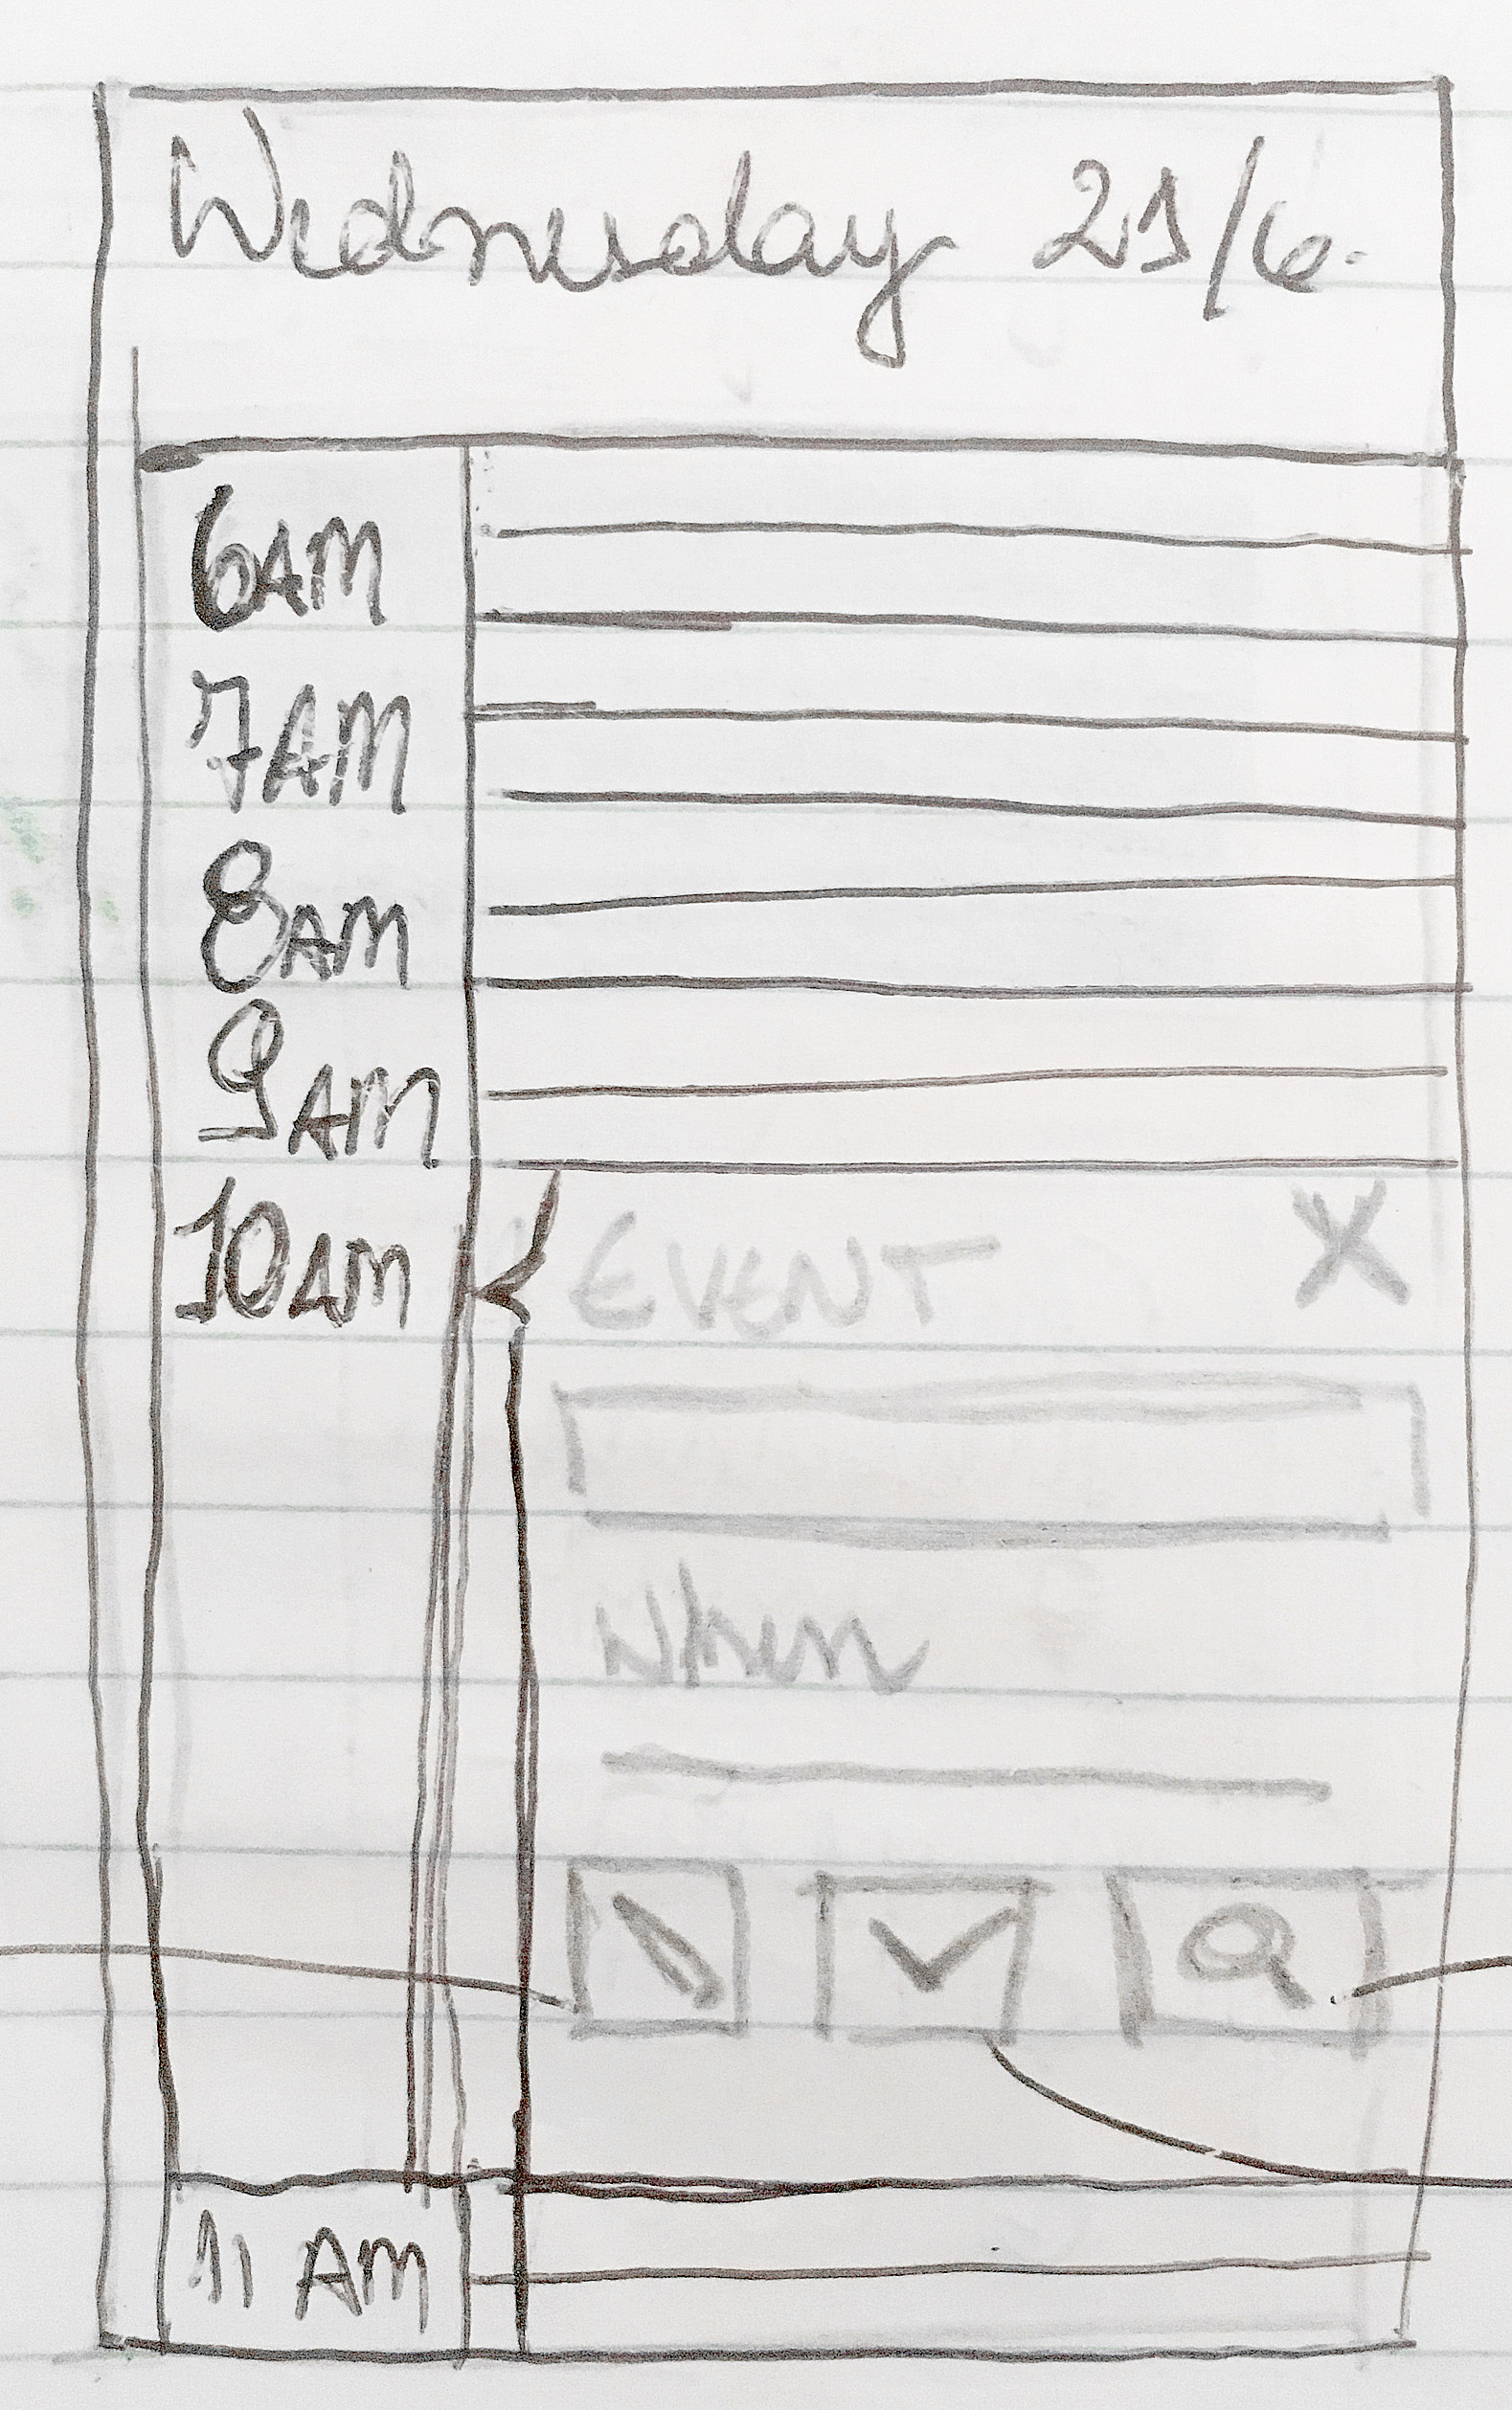 Wednesday 21/6.
6AM
7AM
8AM
9AM
10AM
EVENT X
When
11 AM